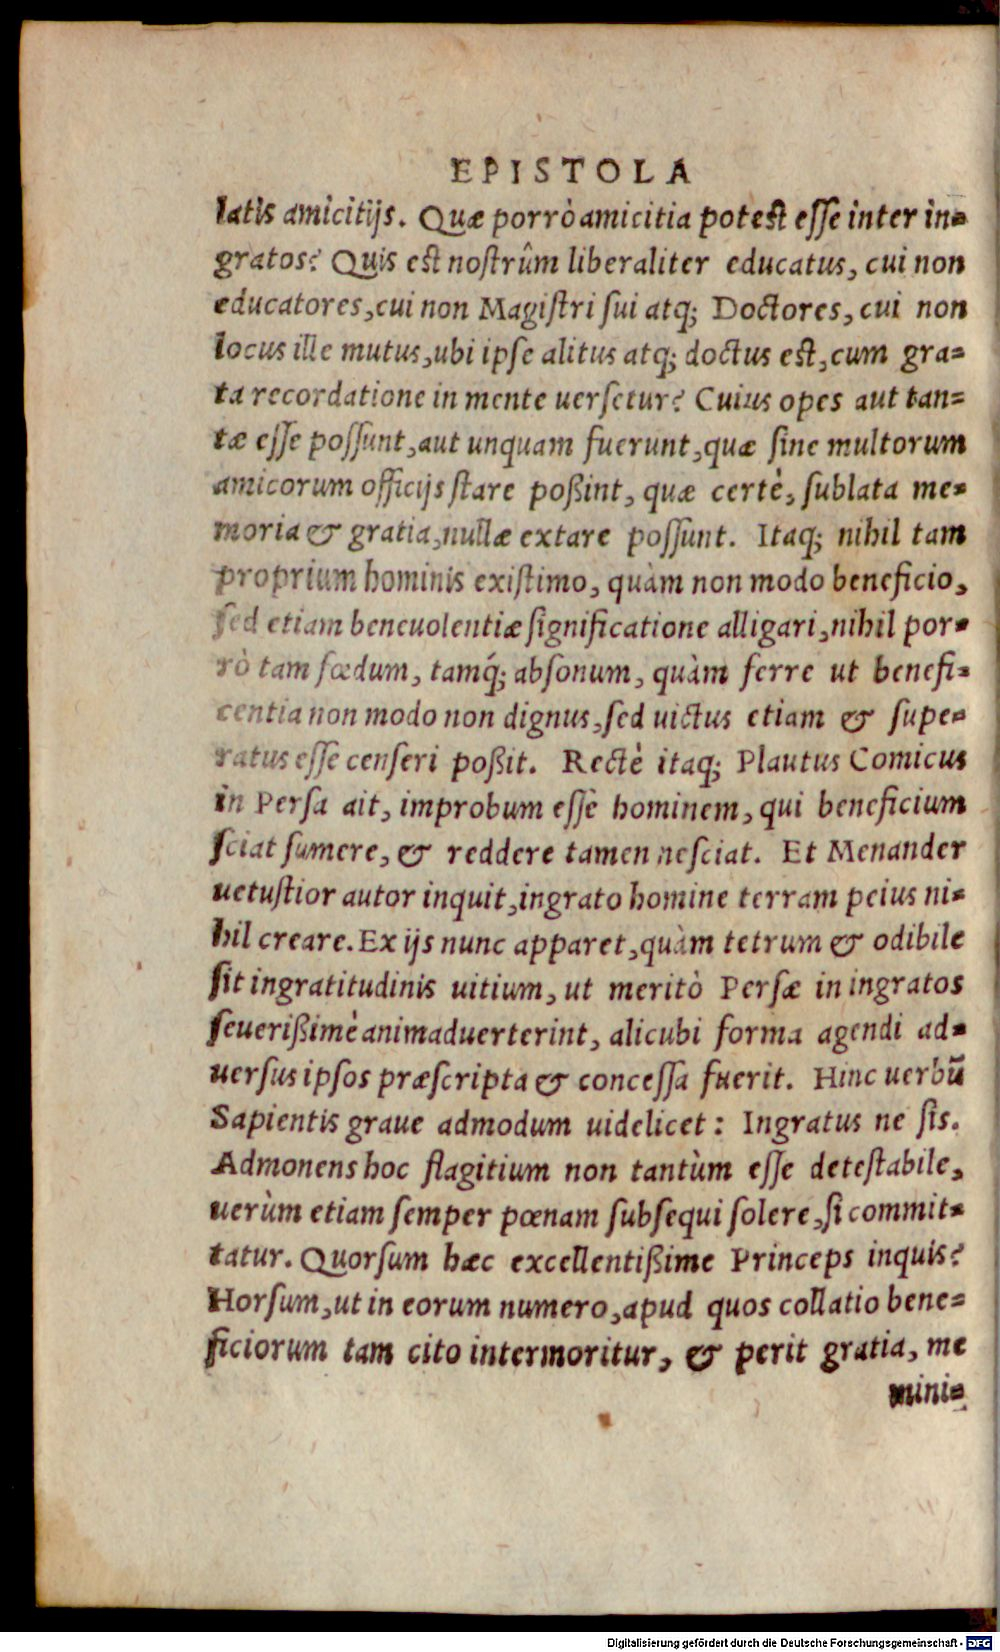 EPISTOLA
latis amicitijs. Quæ porrò amicitia potest esse inter in-
gratos? Quis est nostrûm liberaliter educatus, cui non
educatores, cui non Magistri sui atq; Doctores, cui non
locus ille mutus, ubi ipse alitus atq; doctus est, cum gra-
ta recordatione in mente uersetur? Cuius opes aut tan-
tæ esse possunt, aut unquam fuerunt, quæ sine multorum
amicorum officijs stare poßint, quæ certè, sublata me-
moria & gratia, nullæ extare possunt. Itaq; nihil tam
proprium hominis existimo, quàm non modo beneficio,
sed etiam beneuolentiæ significatione alligari, nihil por-
rò tam fœdum, tamq́; absonum, quàm ferre ut benefi-
centia non modo non dignus, sed uictus etiam & supe-
ratus esse censeri poßit. Rectè itaq; Plautus Comicus
in Persa ait, improbum esse hominem, qui beneficium
sciat sumere, & reddere tamen nesciat. Et Menander
uetustior autor inquit, ingrato homine terram peius ni-
hil creare. Ex ijs nunc apparet, quàm tetrum & odibile
sit ingratitudinis uitium, ut meritò Persæ in ingratos
seuerißimè animaduerterint, alicubi forma agendi ad-
uersus ipsos præscripta & concessa fuerit. Hinc uerbū
Sapientis graue admodum uidelicet: Ingratus ne sis.
Admonens hoc flagitium non tantùm esse detestabile,
uerùm etiam semper pœnam subsequi solere, si commit-
tatur. Quorsum hæc excellentißime Princeps inquis?
Horsum, ut in eorum numero, apud quos collatio bene-
ficiorum tam cito intermoritur, & perit gratia, me
mini-
Digitalisierung gefördert durch die Deutsche Forschungsgemeinschaft - DFG